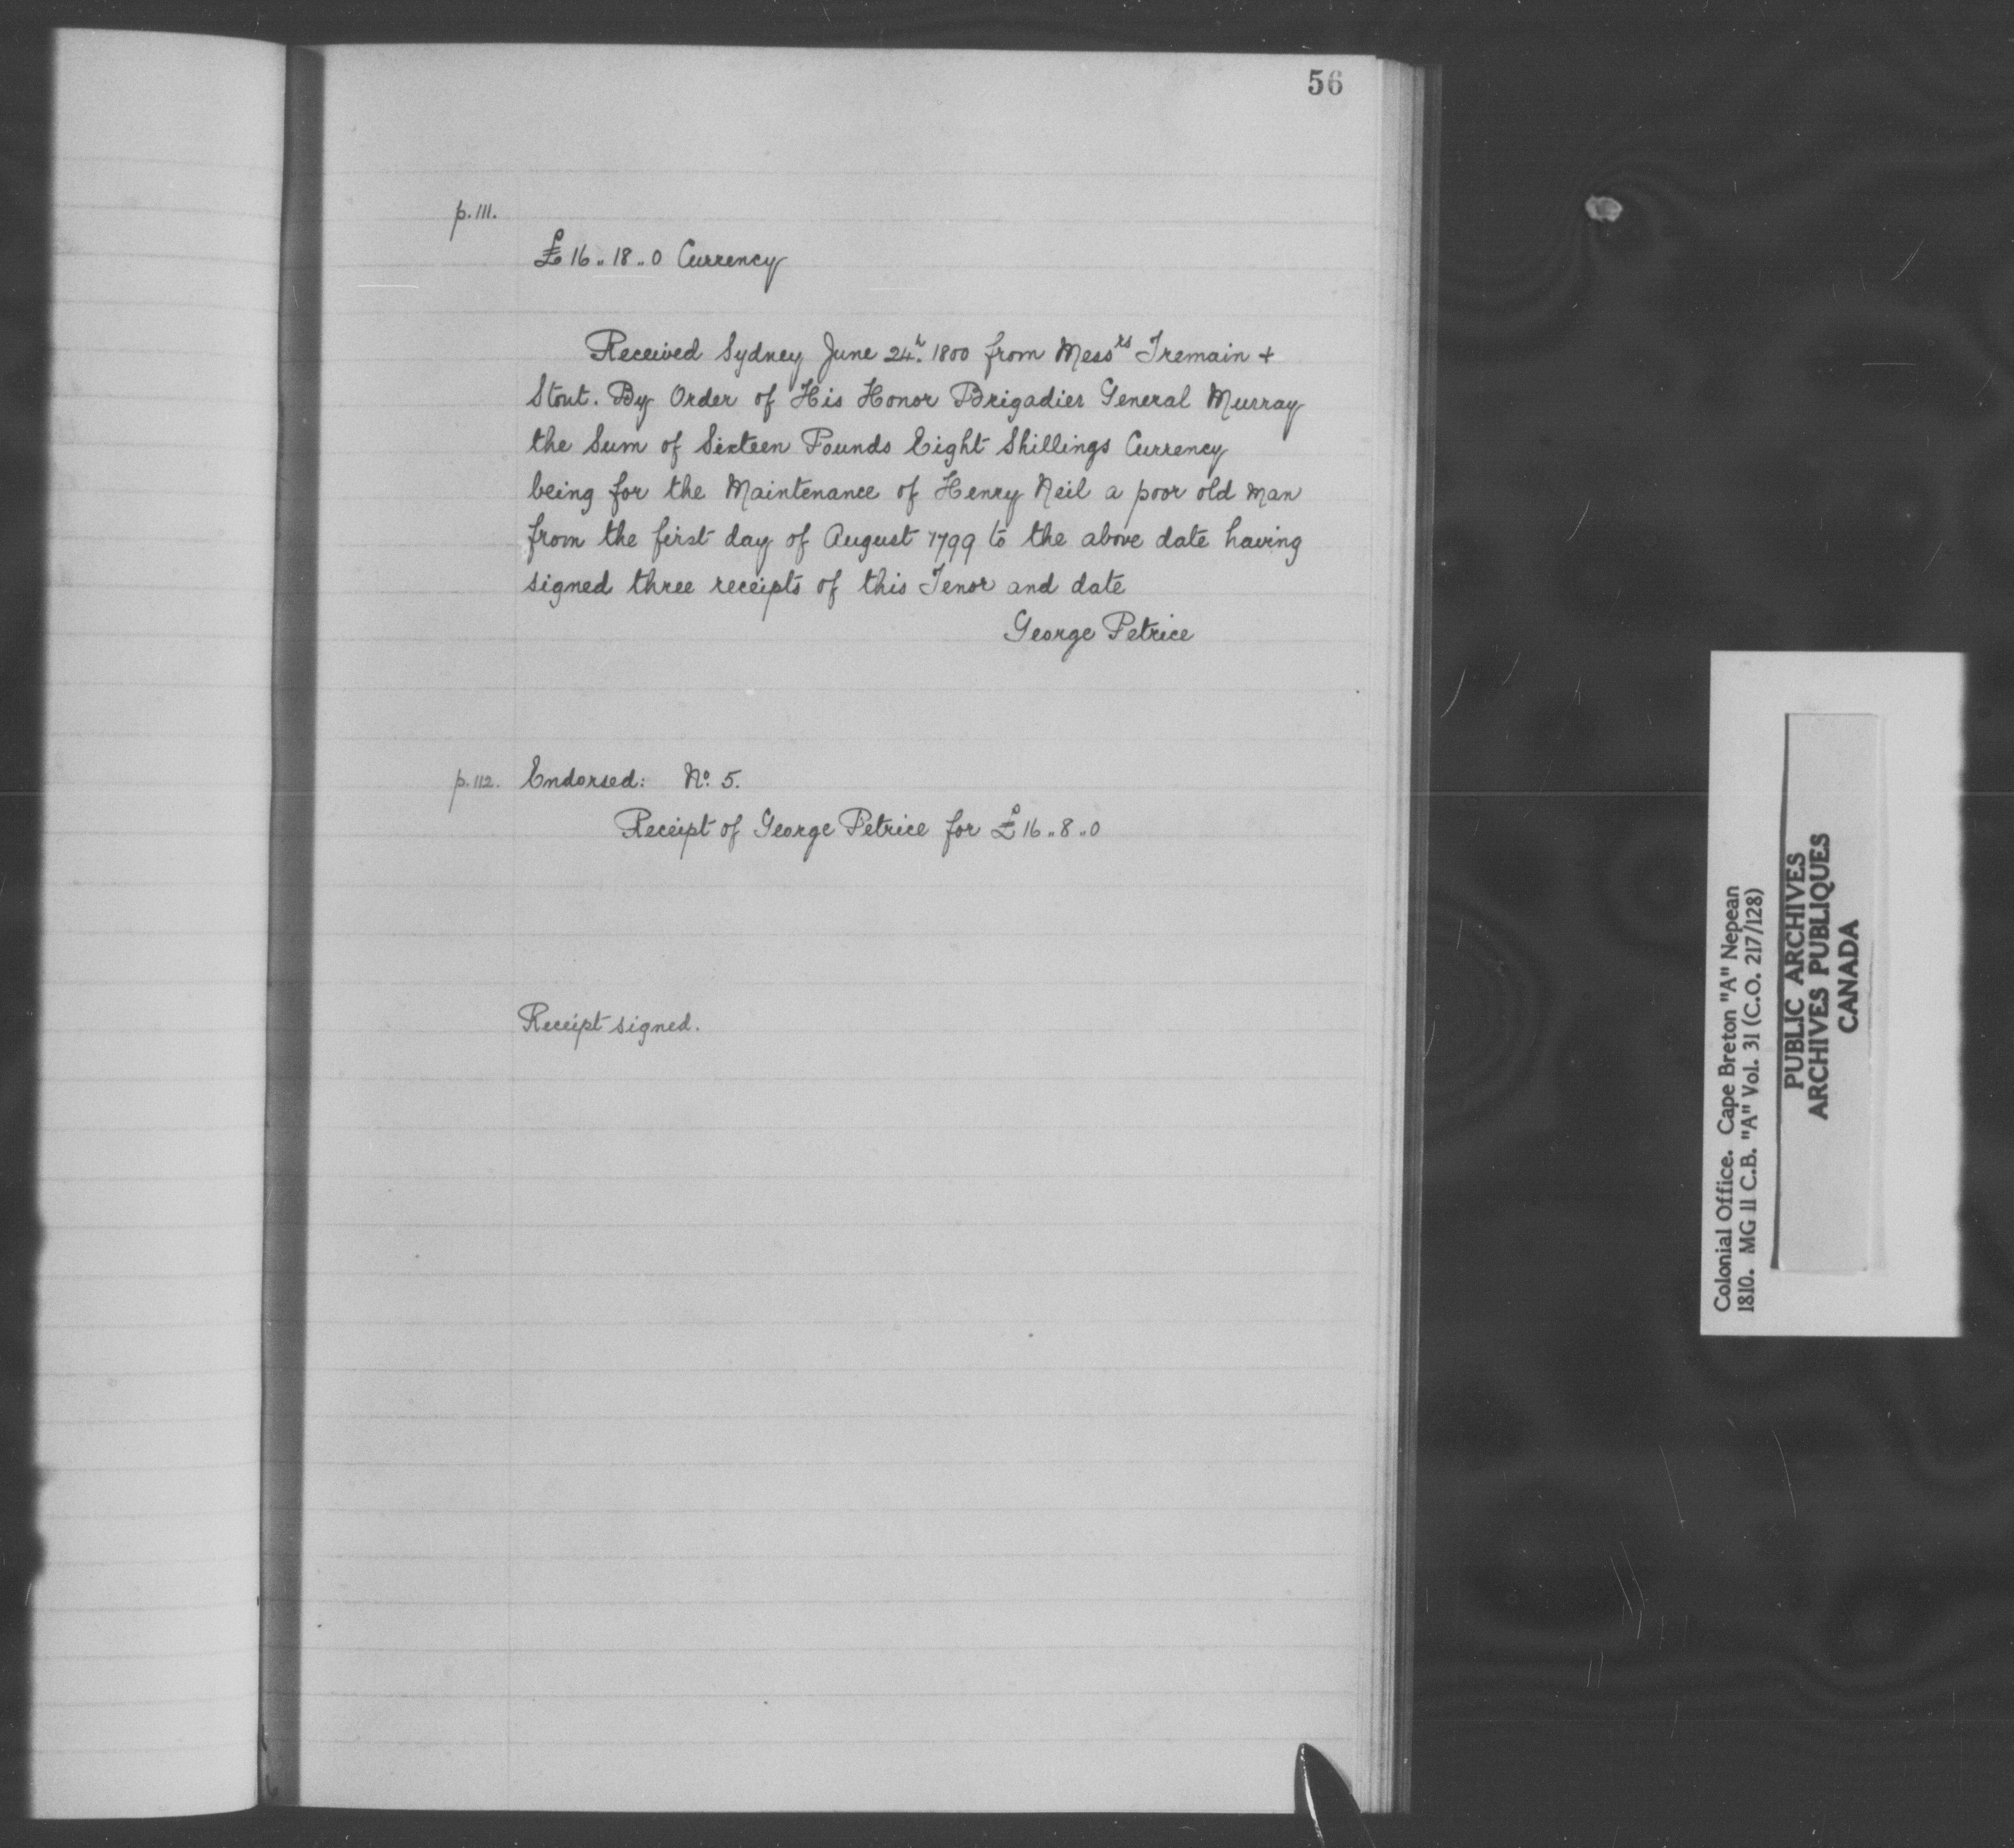 56
p.111.
£16..18..0 Currency
Received Sydney June 24.h 1800 from Messrs Tremain +
Stout. By Order of His Honor Brigadier General Murray
the Sum of Sixteen Pounds Eight Shillings Currency
being for the Maintenance of Henry Neil a poor old man
from the first day of August 1799 to the above date having
signed three receipts of this Tenor and date
George Petrice
p.112. Endorsed: No. 5.
Receipt of George Petrice for £16..8..0
Receipt signed.
Colonial Office. Cape Breton "A" Nepean
1810. MG 11 C.B. "A" Vol. 31 (C.O. 217/128)
PUBLIC ARCHIVES
ARCHIVES PUBLIQUES
CANADA